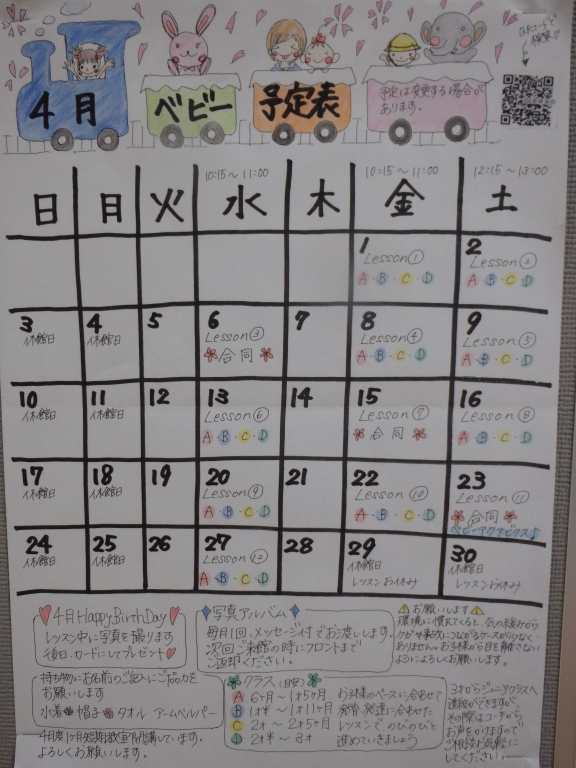 QRコードで
検索!!
4月 ベビー 予定表
予定は変更する場合が
あります。
10:15～11:00 10:15～11:00 12:15～13:00
日 月 火 水 木 金 土
1 2
Lesson① Lesson②
A・B・C・D A・B・C・D
3 4 5 6 7 8 9
休館日 休館日 Lesson③ Lesson④ Lesson⑤
合同 A・B・C・D A・B・C・D
10 11 12 13 14 15 16
休館日 休館日 Lesson⑥ Lesson⑦ Lesson⑧
A・B・C・D 合同 A・B・C・D
17 18 19 20 21 22 23
休館日 休館日 Lesson⑨ Lesson⑩ Lesson⑪
A・B・C・D A・B・C・D 合同
ベビーアクアビクス♪
24 25 26 27 28 29 30
休館日 休館日 Lesson⑫ 休館日
A・B・C・D レッスンお休み レッスンお休み
4月 Happy BirthDay
レッスン中に写真を撮ります
後日、カードにしてプレゼント
持ち物にお名前のご記入にご協力を
お願いします
水着 帽子 タオル アームヘルパー
4月度1ヶ月短期教室開講しています。
よろしくお願いします。
写真アルバム
毎月1回、メッセージ付でお渡しします。
次回ご来館の時にフロントまで
ご返却ください。
クラス(目安)
A 6ヶ月～1才5ヶ月
B 1才半～1才11ヶ月
C 2才～2才5ヶ月
D 2才半～3才
お子様のペースに合わせて
発育・発達に合わせた
レッスンでのびのびと
進めていきましょう
⚠お願いします⚠
環境に慣れてくると、気の緩みから
ケガや事故につながるケースが少なく
ありません。お子様から目を離さない
ようによろしくお願いします。
3才からジュニアクラスへ
進級ができますが、
その際はコーチから
お声をかけますので
ご相談お気軽に
してください。